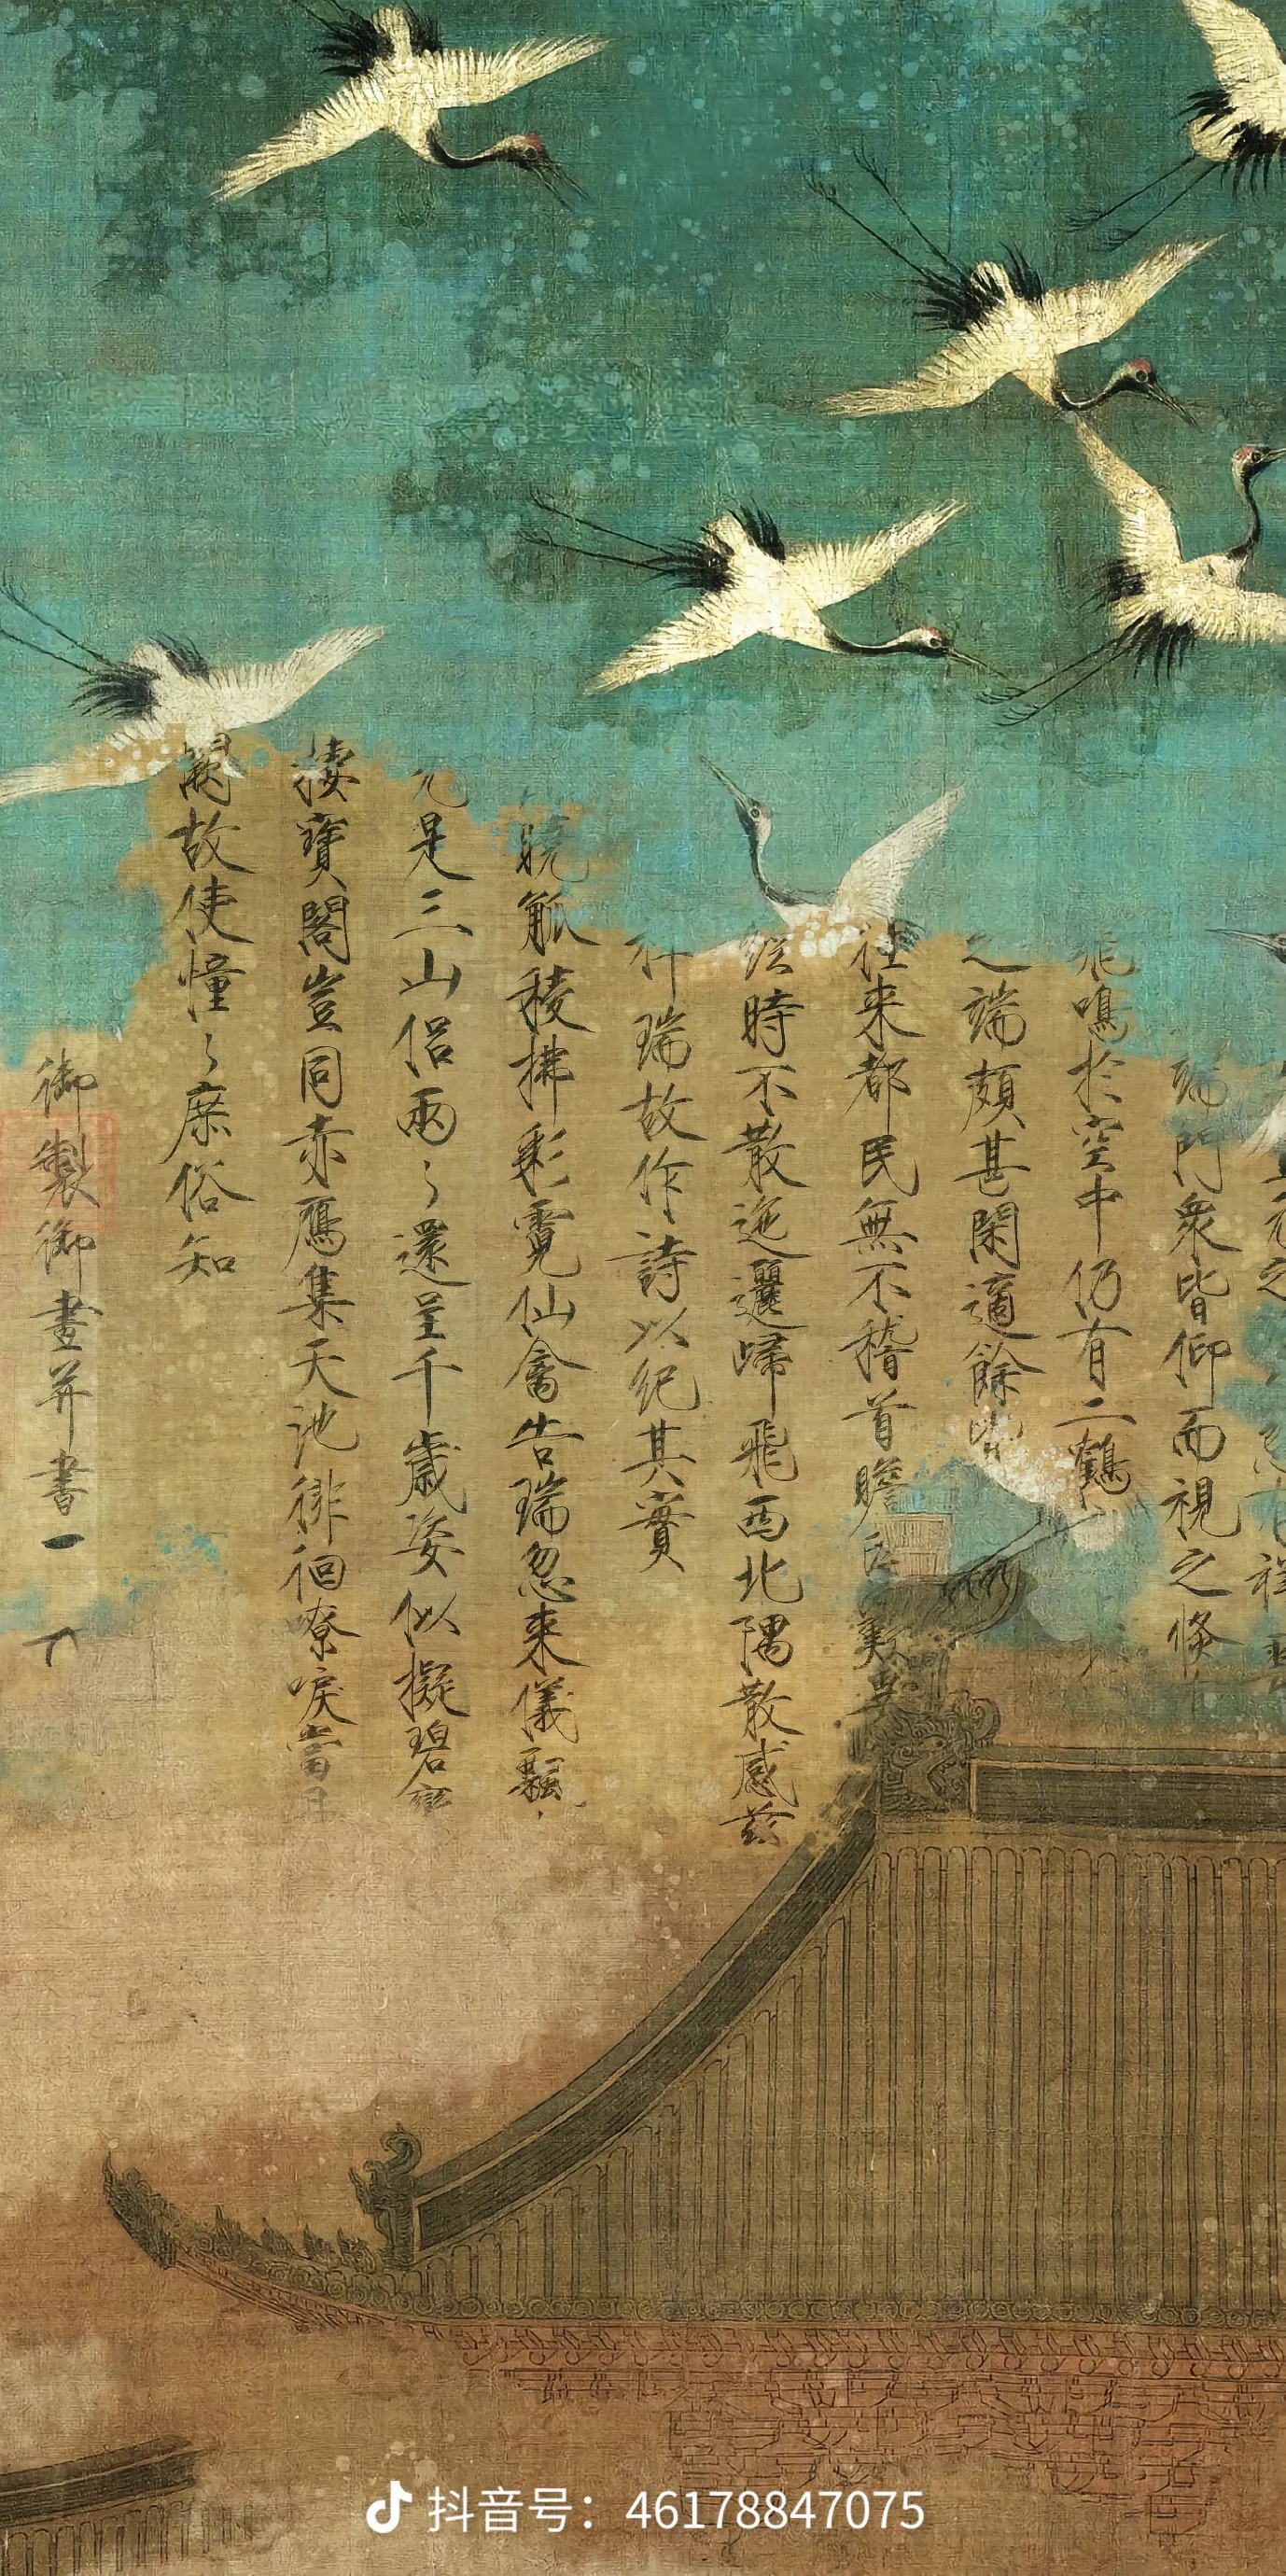 端門衆皆仰而視之倐
飛鳴於空中仍有二鶴
之端頗甚閑適餘
往来都民無不稽首瞻
從時不散迤邐歸飛西北隅散感茲
祥瑞故作詩以紀其實
曉觚稜拂彩霓仙禽告瑞忽来儀飄
元是三山侣兩〻還呈千歲姿似擬碧鸞
棲寶閣豈同赤鴈集天池徘徊嘹唳當丹
闕故使憧〻庶俗知
御製御畫并書
抖音号：46178847075